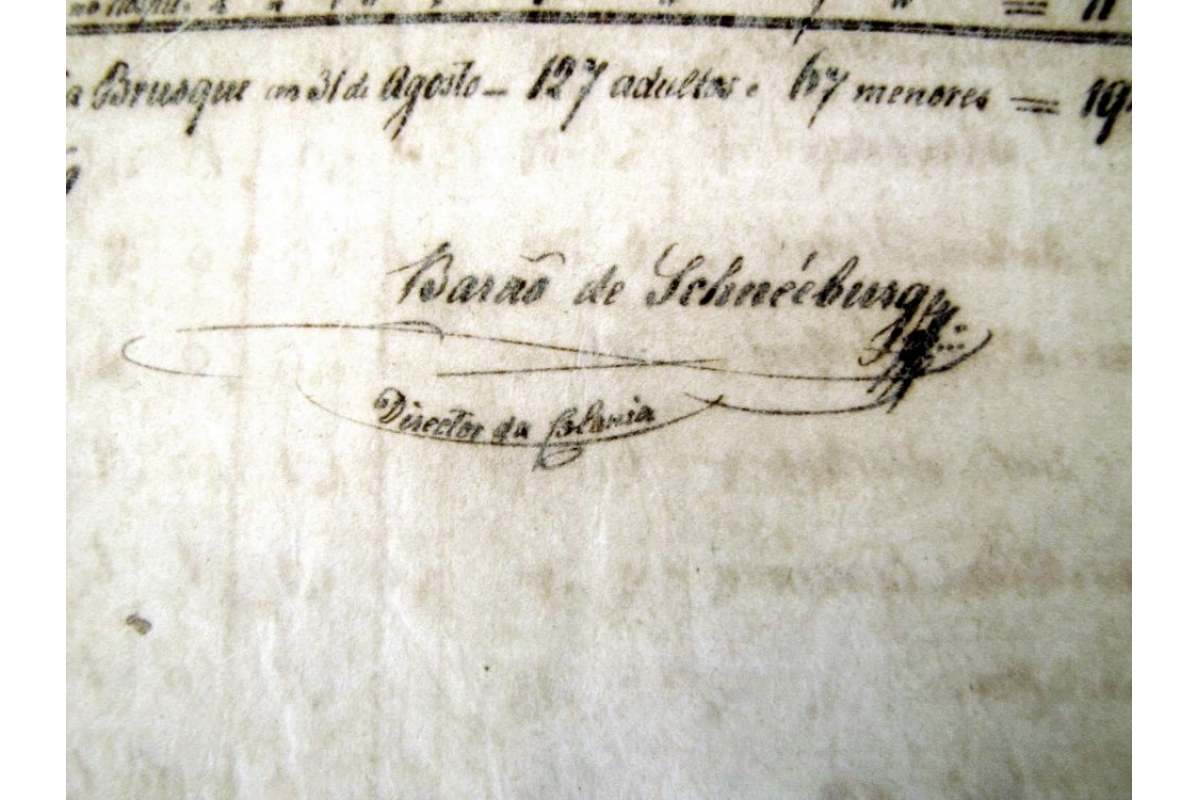 Brusque em 31 de Agosto — 127 adultos e 67 menores = 19
Barão de Schnéeburg
Director da Colonia